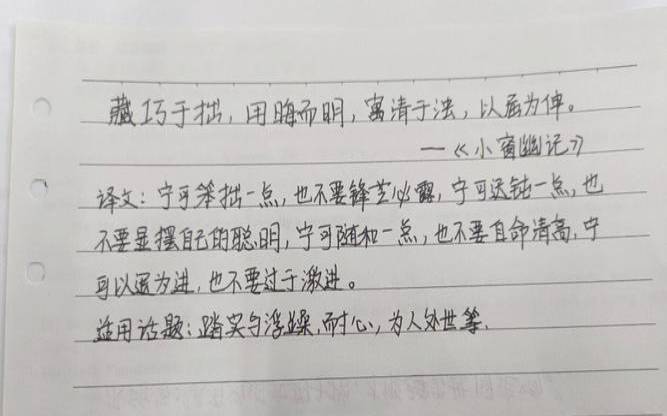 藏巧于拙，用晦而明，寓清于浊，以屈为伸。
—《小窗幽记》
译文：宁可笨拙一点，也不要锋芒必露，宁可迟钝一点，也
不要显摆自己的聪明，宁可随和一点，也不要自命清高，宁
可以退为进，也不要过于激进。
适用话题：踏实与浮躁，耐心，为人处世等.